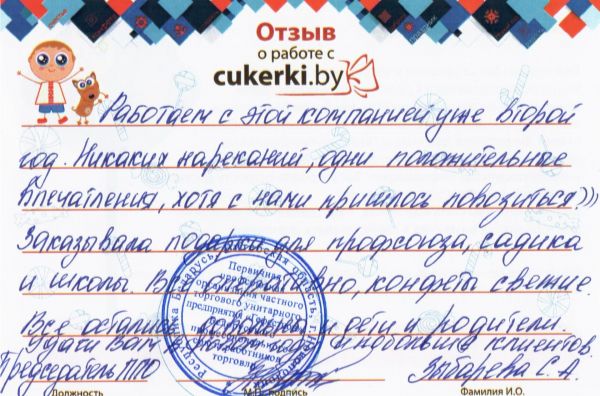 Отзыв
о работе с
cukerki.by
Работаем с этой компанией уже второй
год. Никаких нареканий, одни положительные
впечатления, хотя с нами пришлось повозиться)))
Заказывала подарки для профсоюза, садика
и школы. Всё оперативно, конфеты свежие.
Все остались довольны и дети и родители.
Удачи Вам и побольше клиентов.
Председатель ППО Зыбарева С. А.
Должность М.П. Подпись Фамилия И.О.
Республика Беларусь,
Первичная
профсоюзная
организация частного
торгового унитарного
предприятия
профсоюза работников
торговли